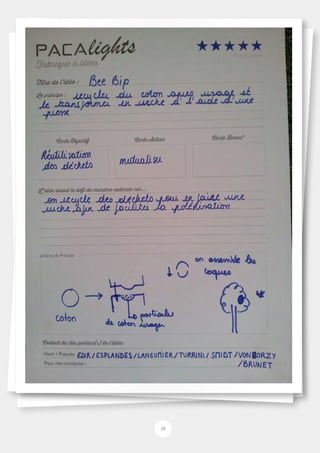 PACAlights
Fabrique à idées
Titre de l'idée : Bee Bip
Le principe : recycler du coton apres usage et
le transformer en ruche à l'aide d'une
presse
Carte Objectif
Carte Action
Carte Bonus*
Réutilisation
des déchets
mutualiser
L'idée résout le défi de manière radicale car...
on recycle des déchets pour en faire une
ruche afin de faciliter la polénisation
Schéma de Principe
on assemble les
coques
coton
particules
de coton usagé
Contact du/des porteur/s/ de l'idée
Nom / Pseudo : EDIR / ESPLANDES / LANGUMIER / TURRINI / SMIDT / VON BORZY
/ BRUNET
Pour me contacter :